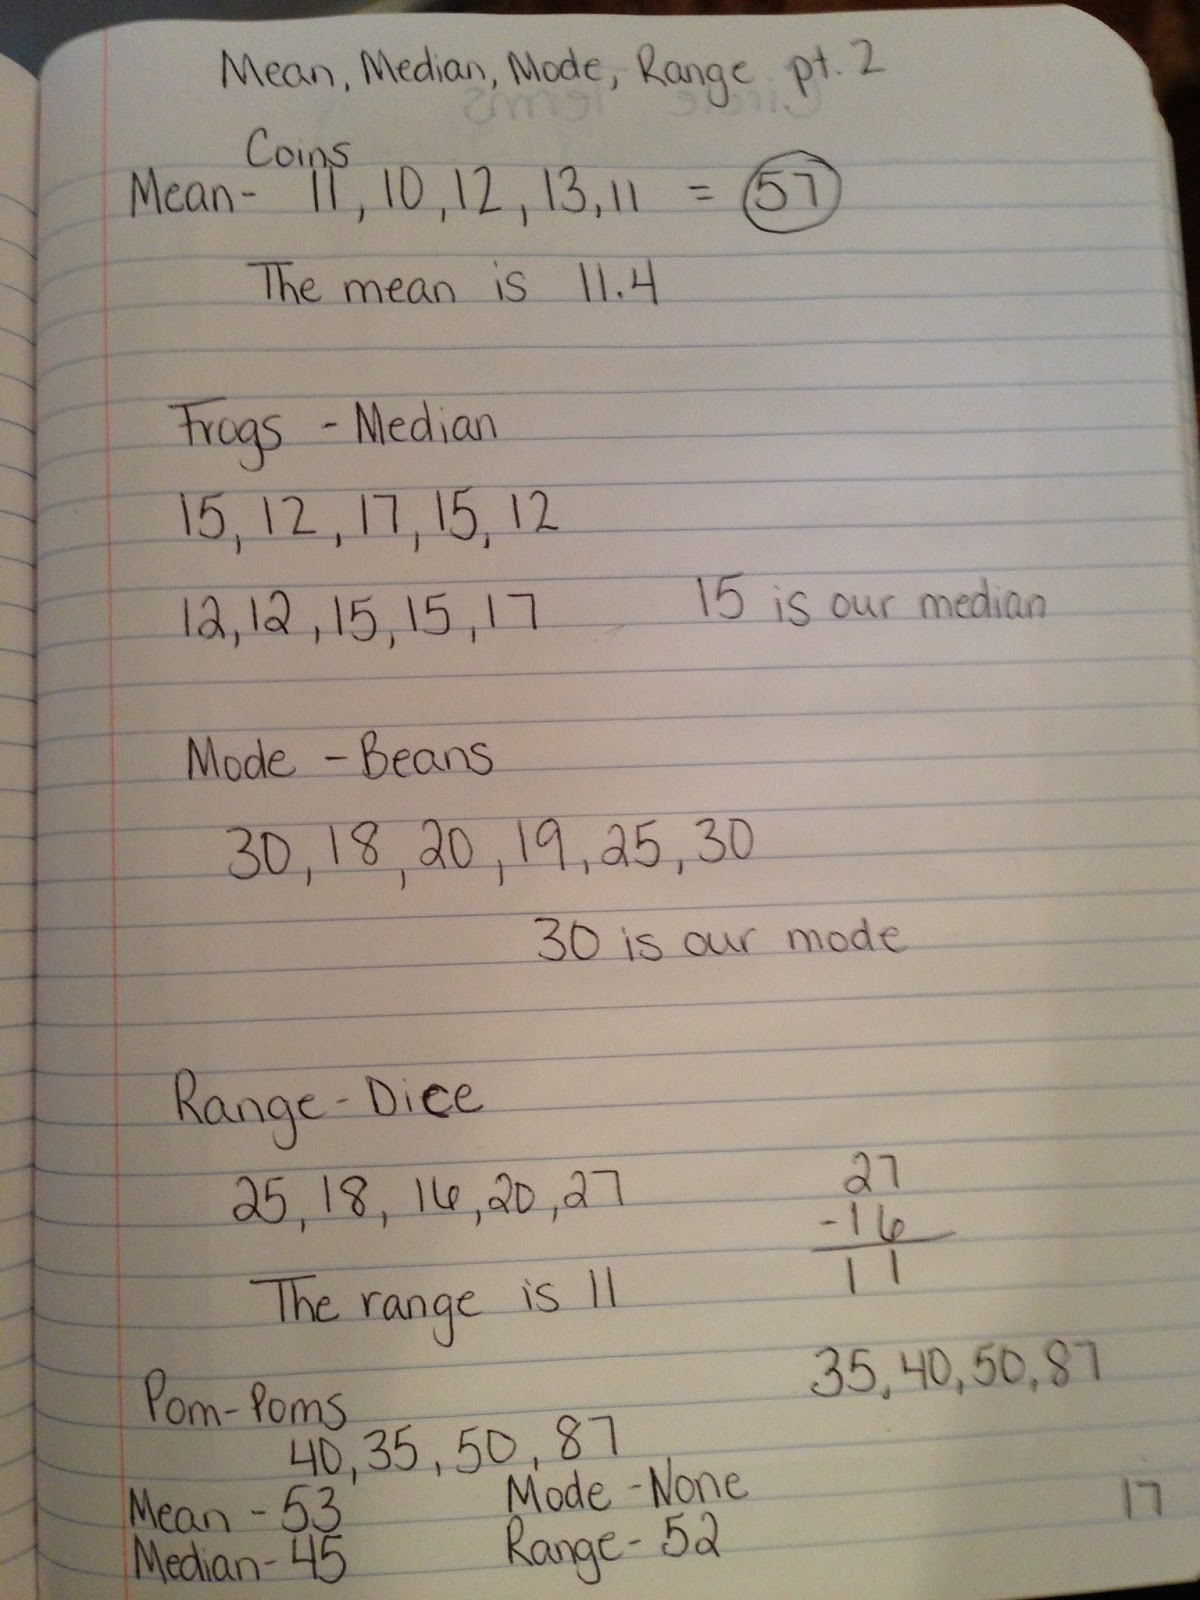 Mean, Median, Mode, Range pt. 2
Coins
Mean- 11, 10, 12, 13, 11 = 57
The mean is 11.4
Frogs - Median
15, 12, 17, 15, 12
12, 12, 15, 15, 17 15 is our median
Mode - Beans
30, 18, 20, 19, 25, 30
30 is our mode
Range - Dice
25, 18, 16, 20, 27
27
-16
11
The range is 11
35, 40, 50, 87
Pom-Poms
40, 35, 50, 87
Mean - 53 Mode - None
Median - 45 Range - 52
17